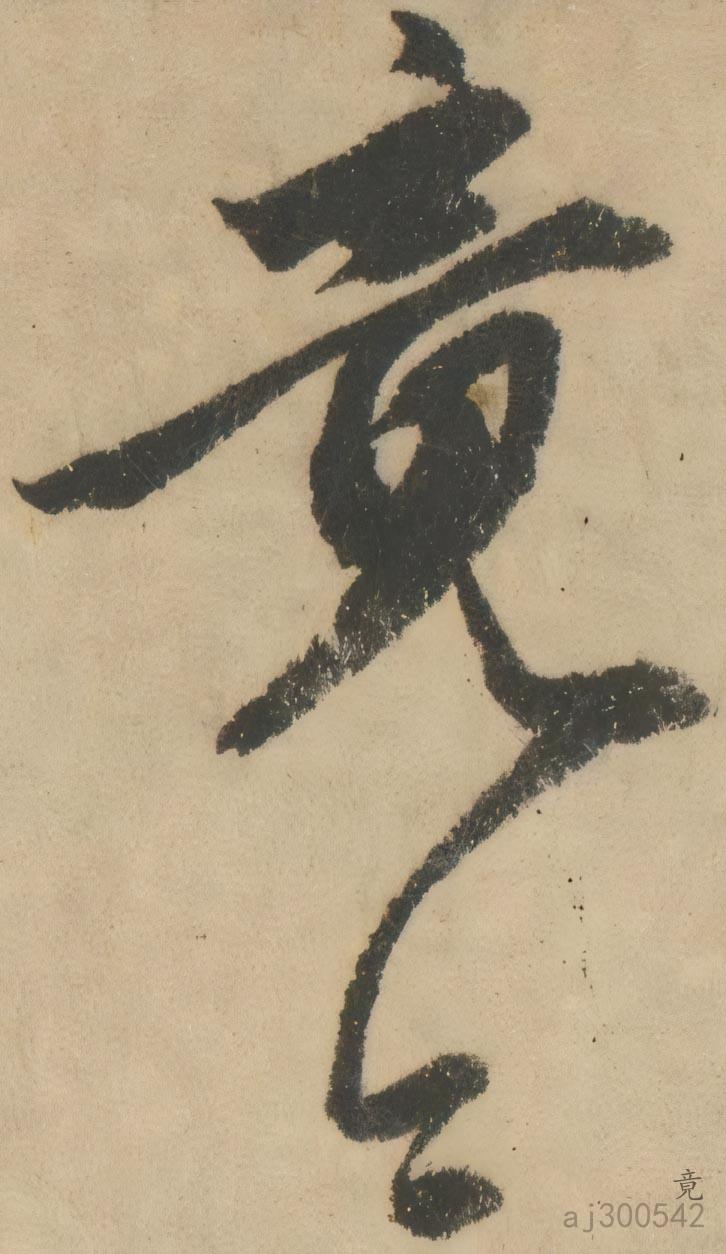 竟
竟
aj300542